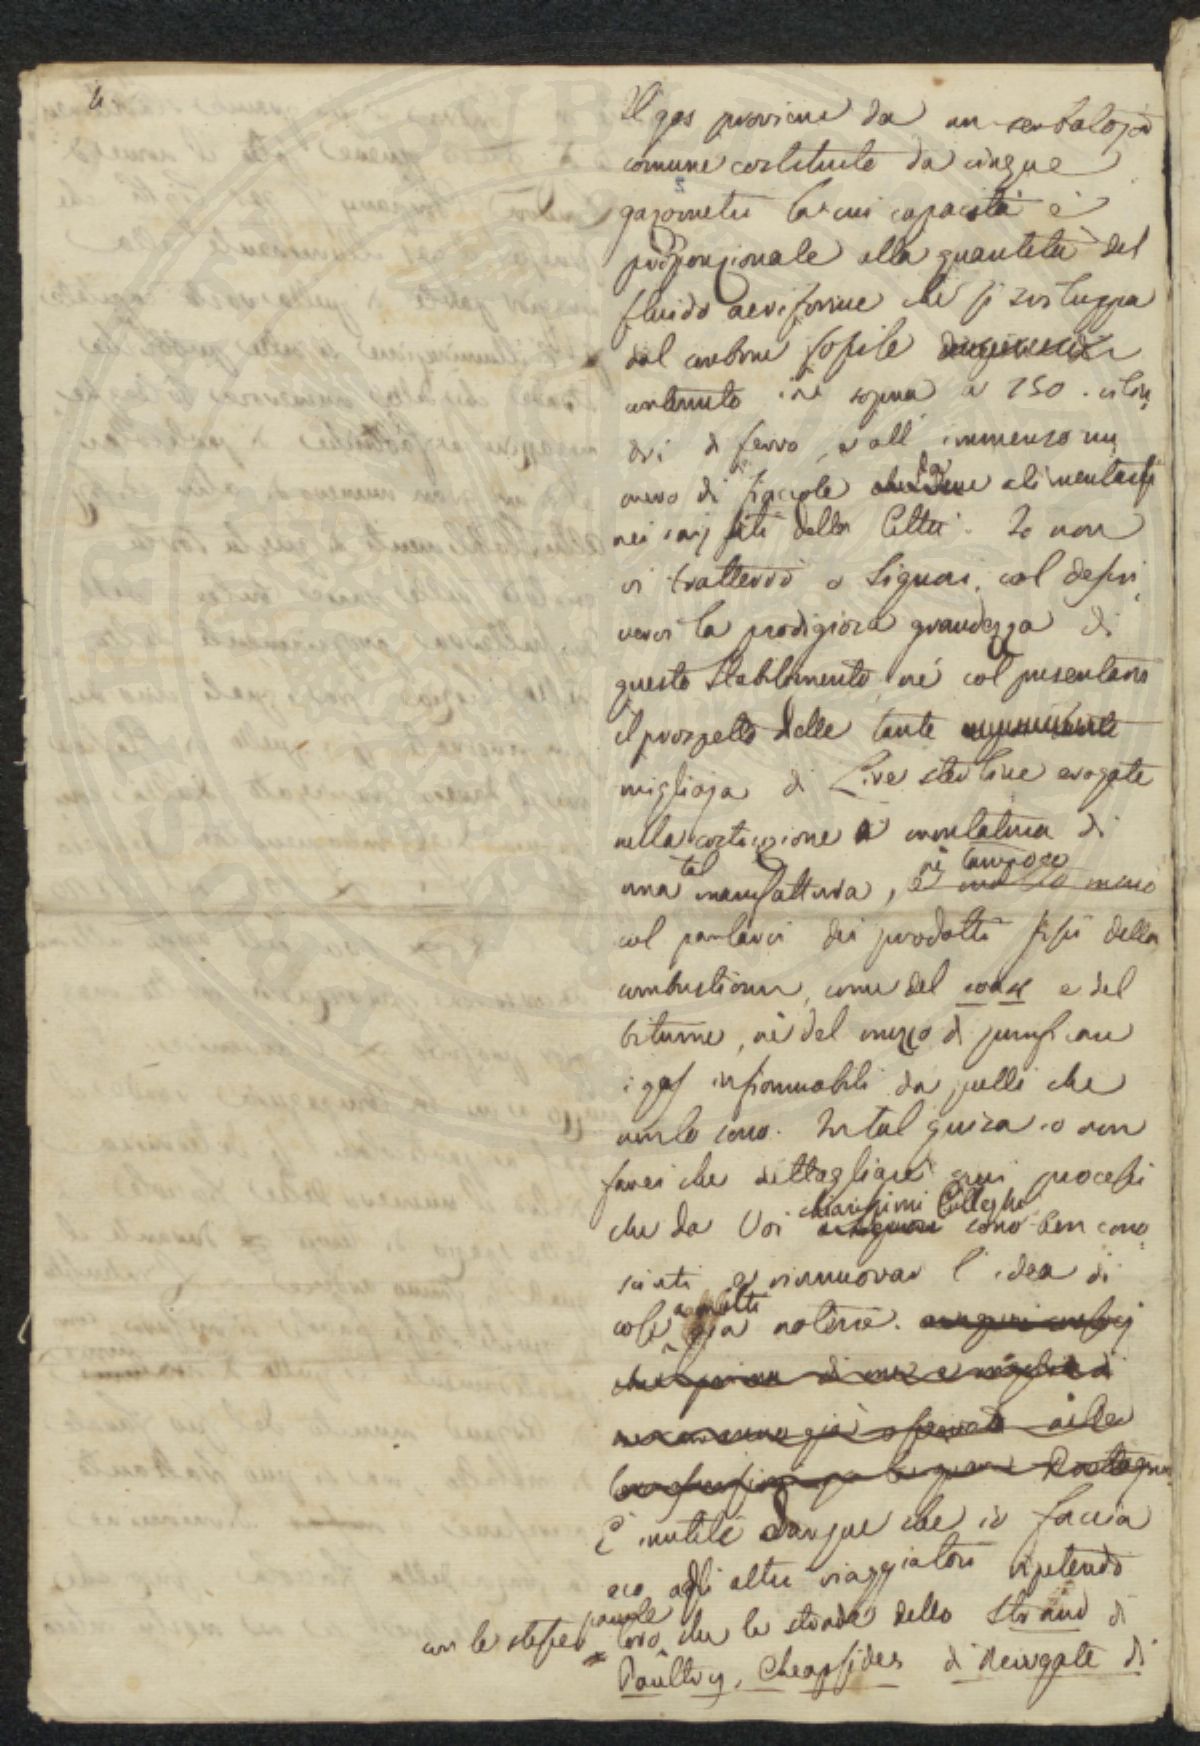 Il gas proviene da un serbatojo
comune costituito da cinque
gazometri la cui capacità è
proporzionale alla quantità del
fluido aeriforme che si sviluppa
dal carbone fossile
contenuto in sopra a 150. cilin
dri di ferro, e all' immenso nu
mero di fiaccole da alimentarsi
nei varj siti della Città. Io non
vi tratterrò o Signori, col descri
vervi la prodigiosa grandezza di
questo Stabilimento, né col presentarvi
il prospetto delle tante
migliaja di Lire sterline erogate
nella costruzione e montatura di
una tal manifattura, né tampoco
col parlarvi dei prodotti fissi della
combustione, come del coak e del
bitume, né del mezzo di purificare
i gas infiammabili da quelli che
non lo sono. In tal guisa io non
farei che dettagliare quei processi
che da Voi chiarissimi Colleghi sono ben cono
sciuti e rinnovar l'idea di
cose a molti già notorie.
È inutile dunque che io faccia
eco agli altri viaggiatori ripetendo
con le stesse parole loro che le strade dello Strand di
Poultry, Cheapsides di Newgate di